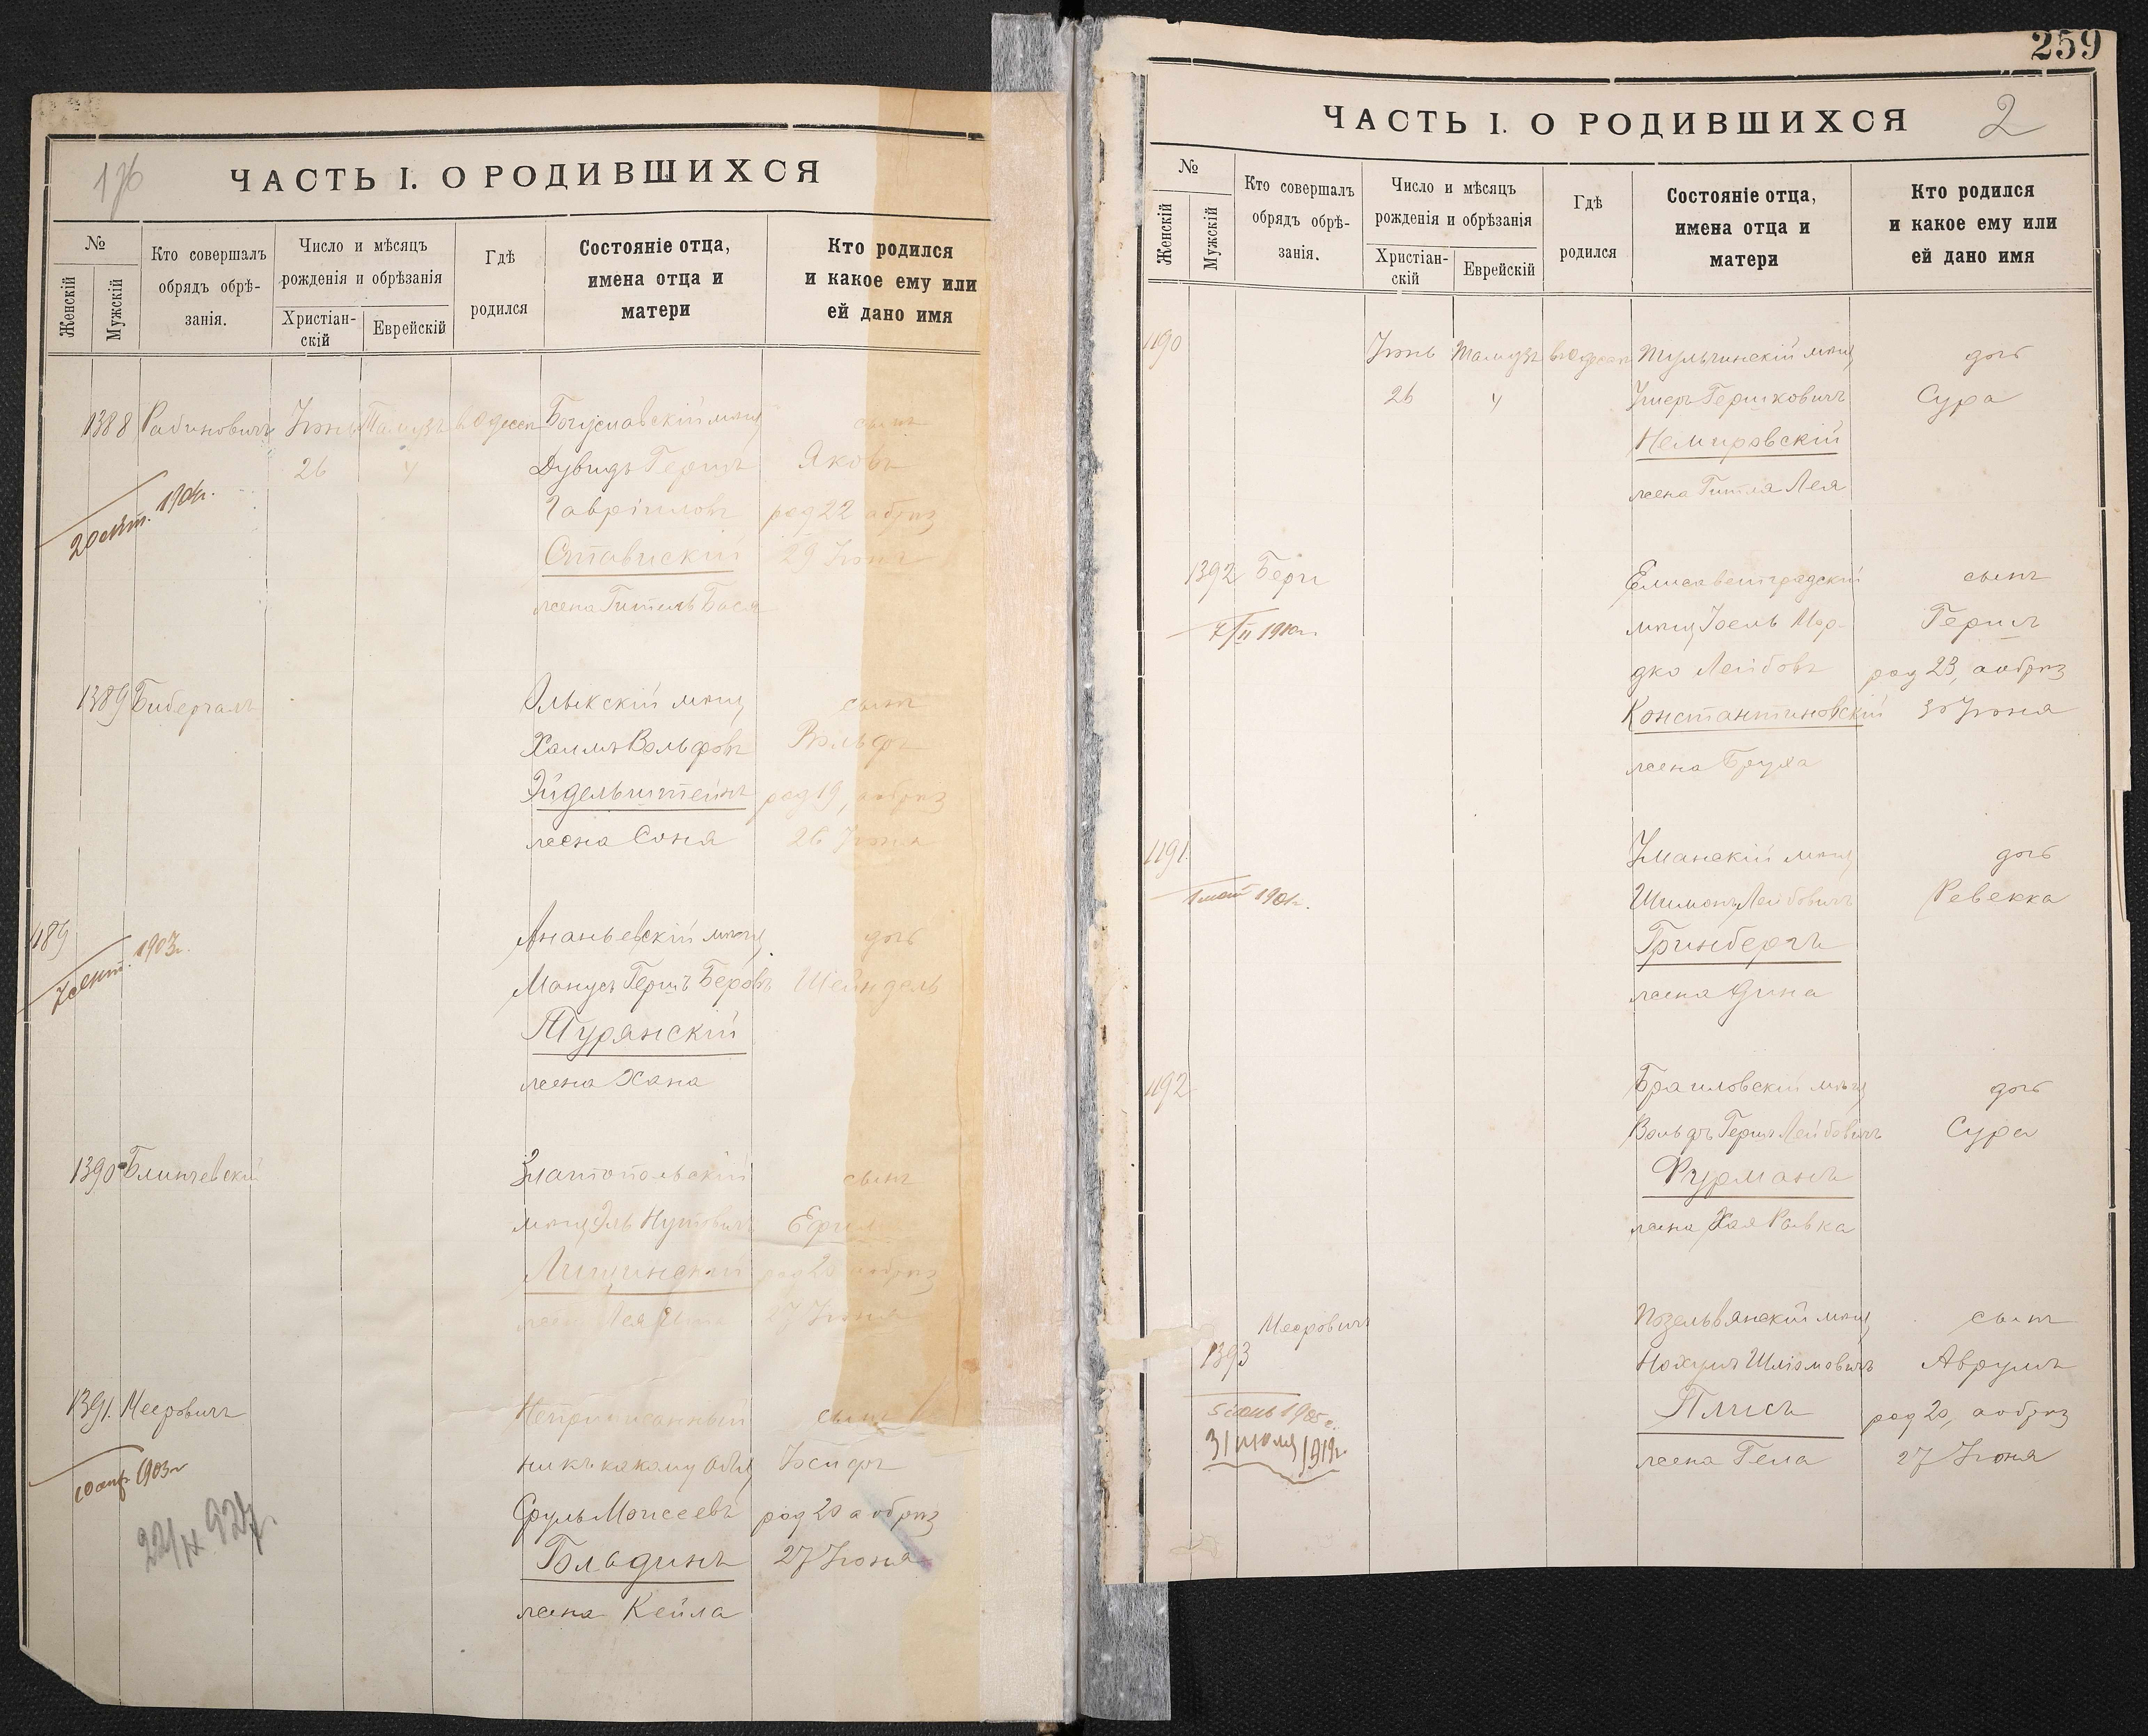 176
ЧАСТЬ I. О РОДИВШИХСЯ
№
Женскій
Мужскій
Кто совершалъ
обрядъ обрѣ-
занія.
Число и мѣсяцъ
рожденія и обрѣзанія
Христіан-
скій
Еврейскій
Гдѣ
родился
Состояніе отца,
имена отца и
матери
Кто родился
и какое ему или
ей дано имя
1388 Рабиновичъ Іюнь Тамузъ в Одессѣ Богуславскій мѣщ сынъ
26 4 Дувидъ Гершъ Яковъ
20 сент. 1904г.
Гавріиловъ род 22 а обрѣз
Ставискій 29 Іюня
жена Гитель Бася
1389 Бибергалъ Олыкскій мѣщ сынъ
Хаимъ Вольфовъ Вольфъ
Эйдельштейнъ род 19, а обрѣз
жена Соня 26 Іюня
1189 Ананьевскій мѣщ дочь
7 сент. 1903г.
Манусъ Гершъ Беровъ Шейндель
Турянскій
жена Хана
1390 Блинчевскій Златопольскій сынъ
мѣщ Эль Нутовичъ Ефраим
Лищинскій род 20 а обрѣз
жена Лея 27 Іюня
1391. Мееровичъ Неприписанный сынъ
ни къ какому общ Іосифъ
10 апр 1903г
Сруль Моисеевъ род 20 а обрѣз
Больдинъ 27 Іюня
жена Кейла
22/IX 927.
259
ЧАСТЬ I. О РОДИВШИХСЯ
2
№
Женскій
Мужскій
Кто совершалъ
обрядъ обрѣ-
занія.
Число и мѣсяцъ
рожденія и обрѣзанія
Христіан-
скій
Еврейскій
Гдѣ
родился
Состояніе отца,
имена отца и
матери
Кто родился
и какое ему или
ей дано имя
1190 Іюнь Тамузъ в Одессѣ Тульчинскій мѣщ дочь
26 4 Ушеръ Гершковичъ Сура
Немировскій
жена Гитля Лея
1392 Бери Елисаветградскій сынъ
7/II 1910г.
мѣщ Іоель Мор- Гершъ
дко Лейбовъ род 23, а обрѣз
Константиновскій 30 Іюня
жена Бруха
1191. Уманскій мѣщ дочь
1 мая 1901г.
Шимонъ Лейбовичъ Ревекка
Гринбергъ
жена Дина
1192 Браиловскій мѣщ дочь
Вольфъ Гершъ Лейбовичъ Сура
Фурманъ
жена Хая Ривка
Мееровичъ Позельвянскій мѣщ сынъ
1393 Нохумъ Шліомовичъ Аврумъ
Плисъ род 20, а обрѣз
31 июля 1919г.
жена Гена 27 Іюня